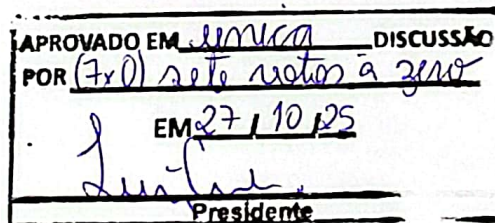 APROVADO EM unica DISCUSSÃO
POR (7x0) sete votos à zero
EM 27 / 10 / 25
Presidente